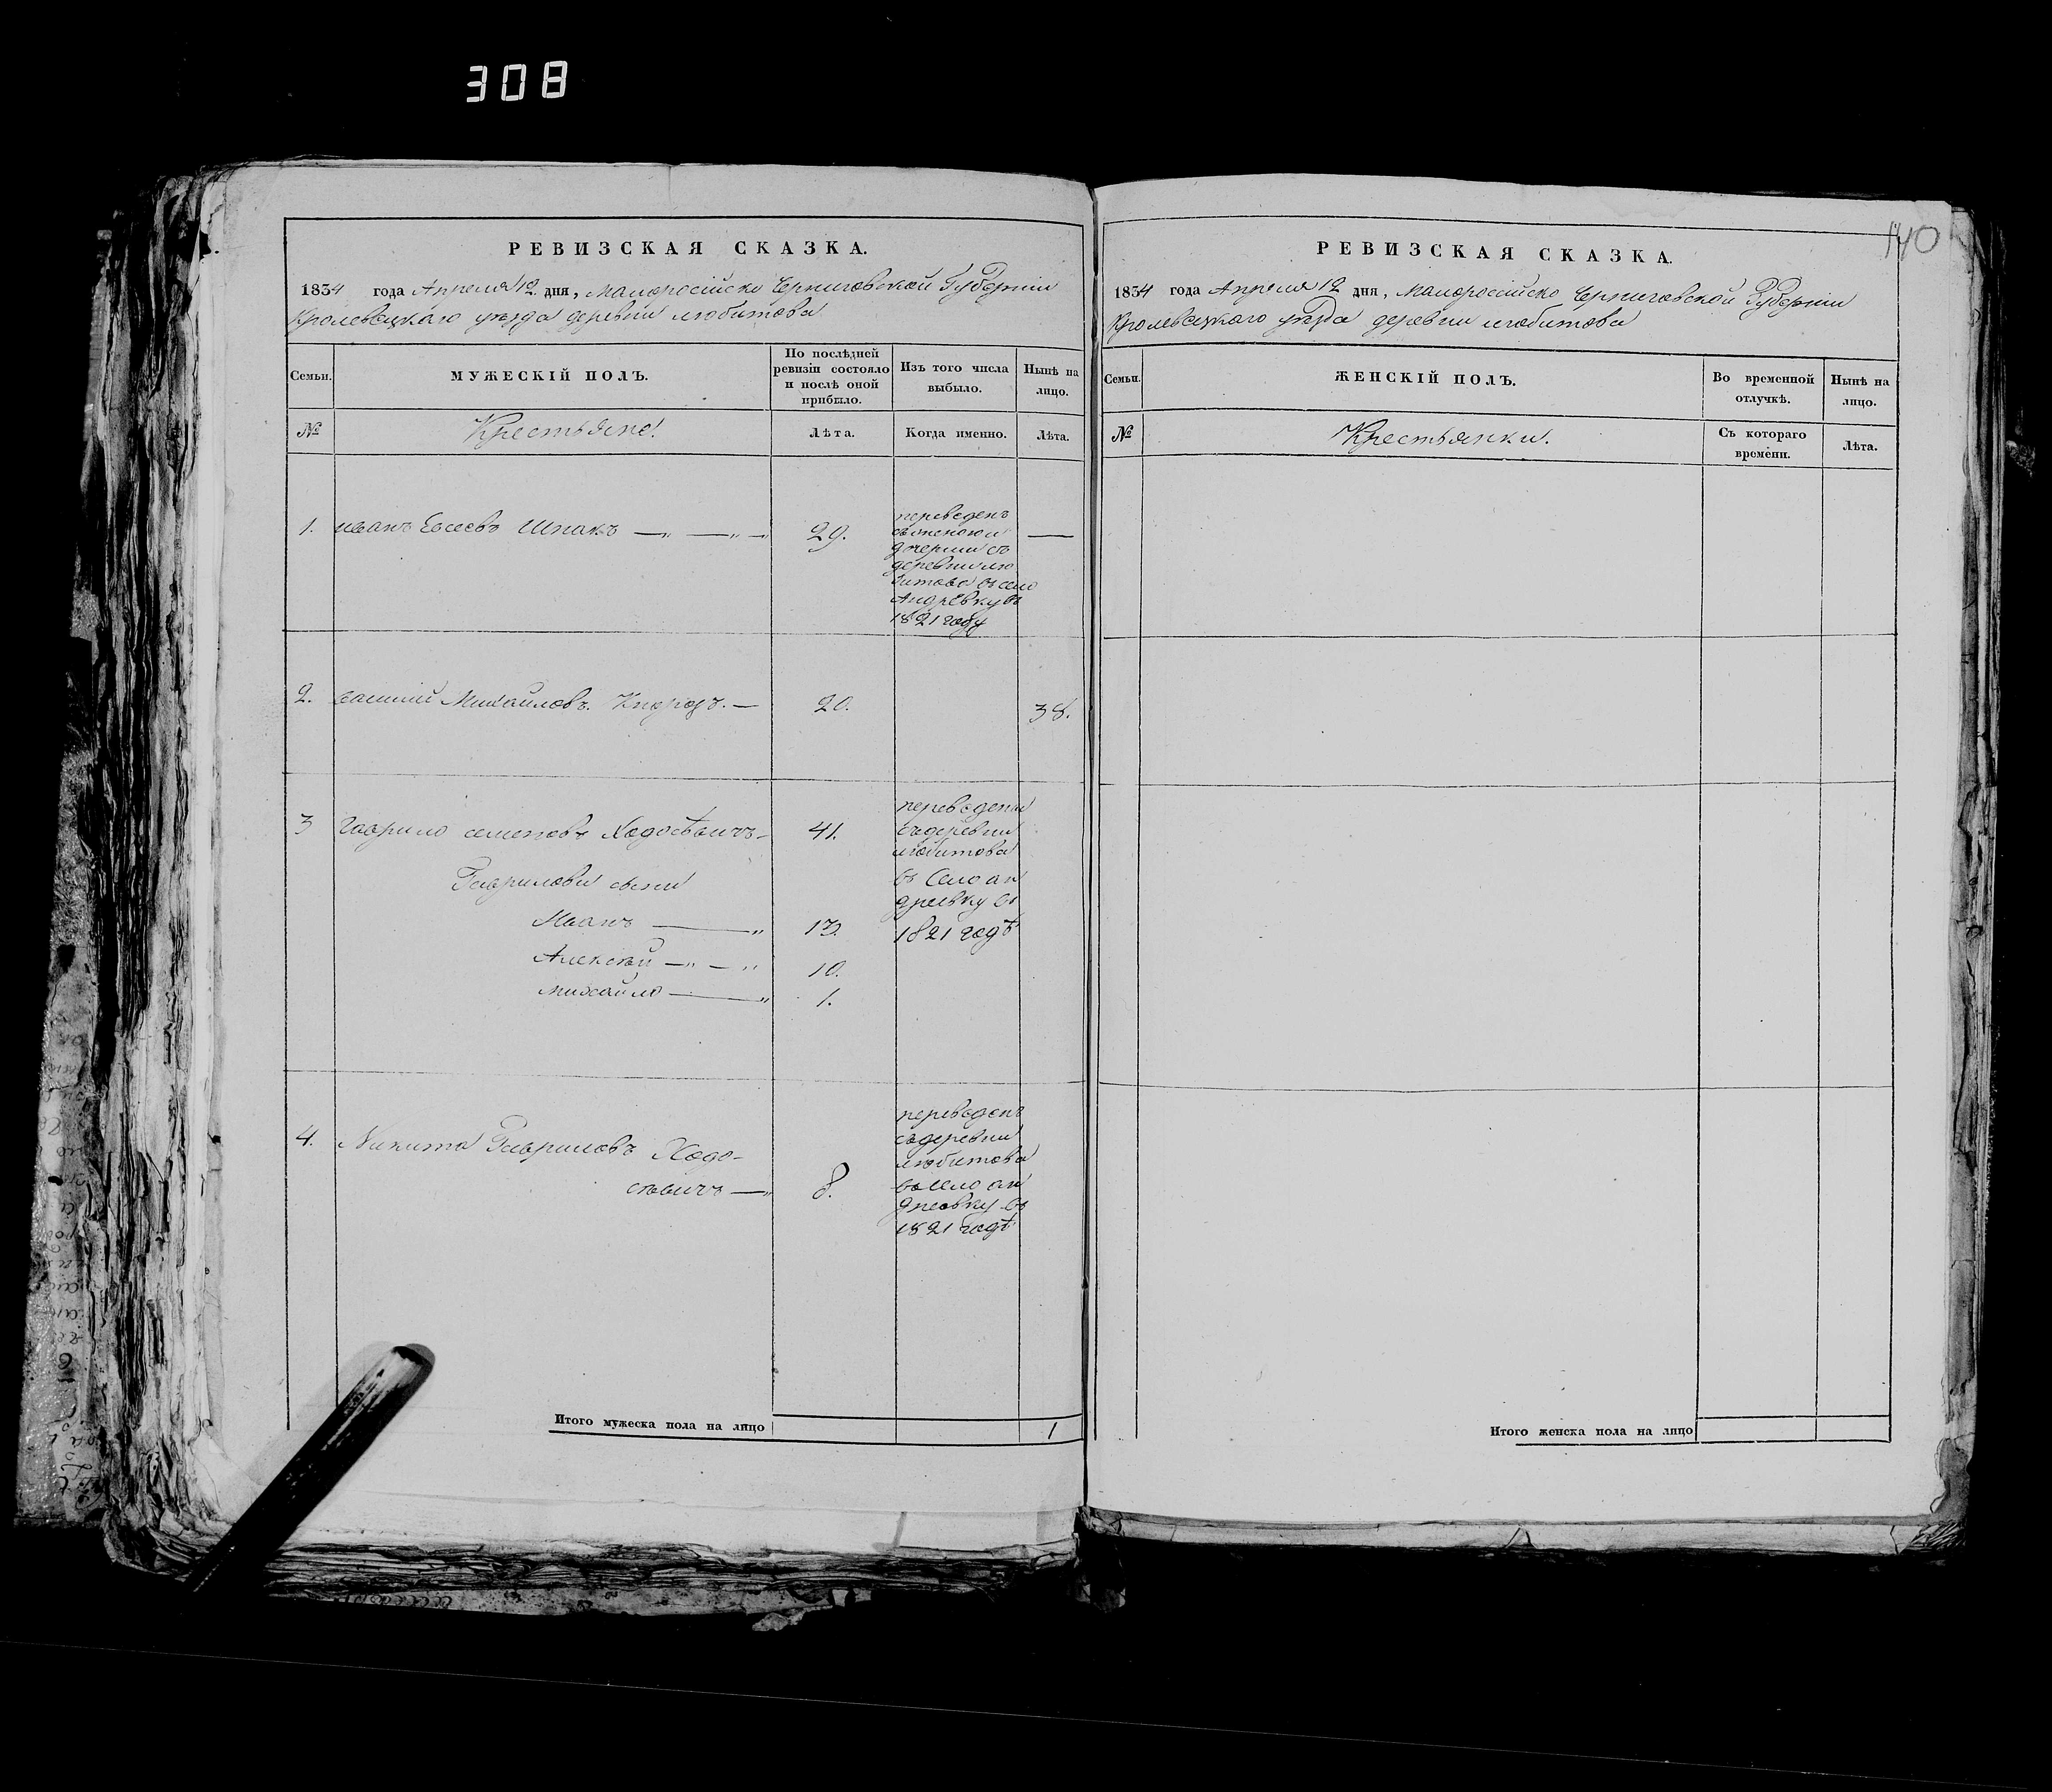 308
140
РЕВИЗСКАЯ СКАЗКА.
1834 года Апреля 12 дня, Малоросійско Черниговской Губерніи
Кролевецкаго уезда деревни любитова
Семьи.
МУЖЕСКІЙ ПОЛЪ.
По послѣдней ревизіи состояло и послѣ оной прибыло.
Изъ того числа выбыло.
Нынѣ на лицо.
№
Крестьяне.
Лѣта.
Когда именно.
Лѣта.
1. иванъ Евсеевъ Шпакъ — „ — „ —
29.
переведенъ
съ женою и
дочерми съ
деревни лю
битова въ село
Андревку въ
1821 году
—
2. василий Михайловъ.
20.
38.
3 гаврило семеновъ Ходосѣвичъ-
41.
переведени
съ деревни
любитова
въ Село ан
дреевку въ
1821 годѣ
Гавриловы сыни
Иванъ — „
13.
Алексѣй — „ — „
10.
михайло — „
1.
4. Никита Гавриловъ Ходо-
сѣвичъ — „
8.
переведенъ
съ деревни
любитова
въ село ан
дреевку въ
1821 годѣ
Итого мужеска пола на лицо
1
РЕВИЗСКАЯ СКАЗКА.
1834 года Апреля 12 дня, Малоросійско Черниговской Губерніи
Кролевецкаго уезда деревни любитова
Семьи.
ЖЕНСКІЙ ПОЛЪ.
Во временной отлучкѣ.
Нынѣ на лицо.
№
Крестьянки.
Съ котораго времени.
Лѣта.
Итого женска пола на лицо